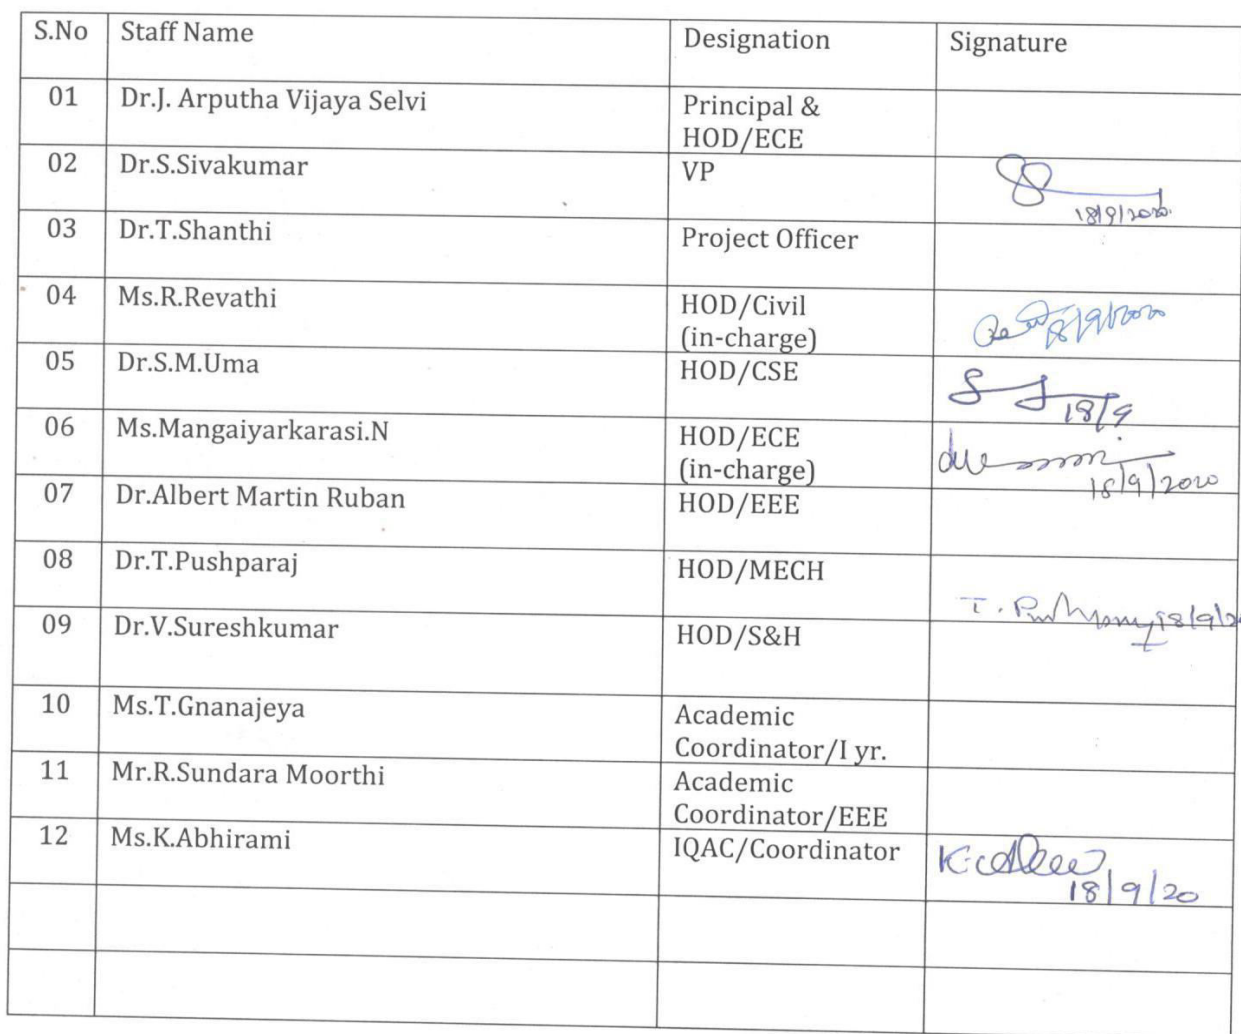 S.No Staff Name Designation Signature
01 Dr.J. Arputha Vijaya Selvi Principal &
HOD/ECE
02 Dr.S.Sivakumar VP
18/9/2020
03 Dr.T.Shanthi Project Officer
04 Ms.R.Revathi HOD/Civil
(in-charge) 18/9/2020
05 Dr.S.M.Uma HOD/CSE
18/9
06 Ms.Mangaiyarkarasi.N HOD/ECE
(in-charge)
18/9/2020
07 Dr.Albert Martin Ruban HOD/EEE
08 Dr.T.Pushparaj HOD/MECH
T. 18/9/20
09 Dr.V.Sureshkumar HOD/S&H
10 Ms.T.Gnanajeya Academic
Coordinator/I yr.
11 Mr.R.Sundara Moorthi Academic
Coordinator/EEE
12 Ms.K.Abhirami IQAC/Coordinator
18/9/20